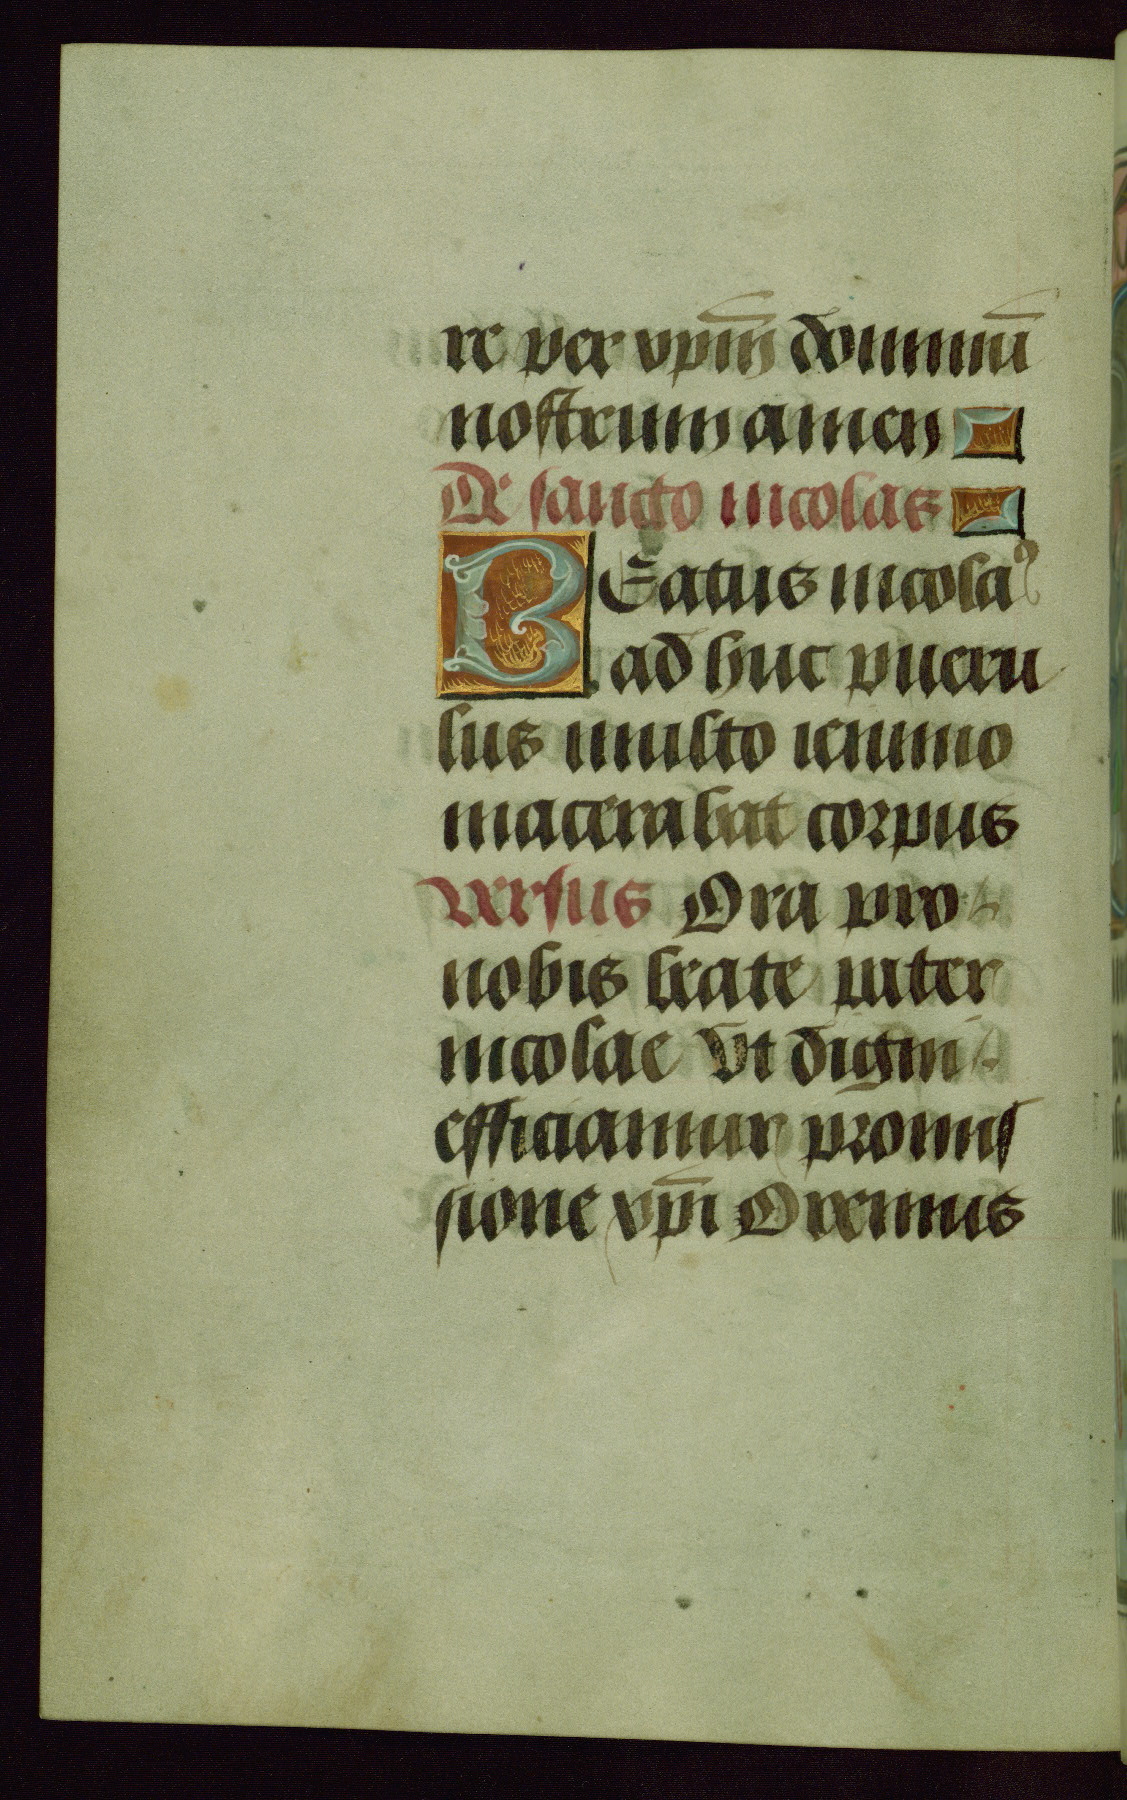 re per xp̄m dominū
nostrum amen
De sancto nicolae
BEatus nicolaꝰ
ad huc pueru
lus multo ieiunio
macerabat corpus
versus Ora pro
nobis beate pater
nicolae Vt digni
efficiamur promis
sione xp̄i Oremus